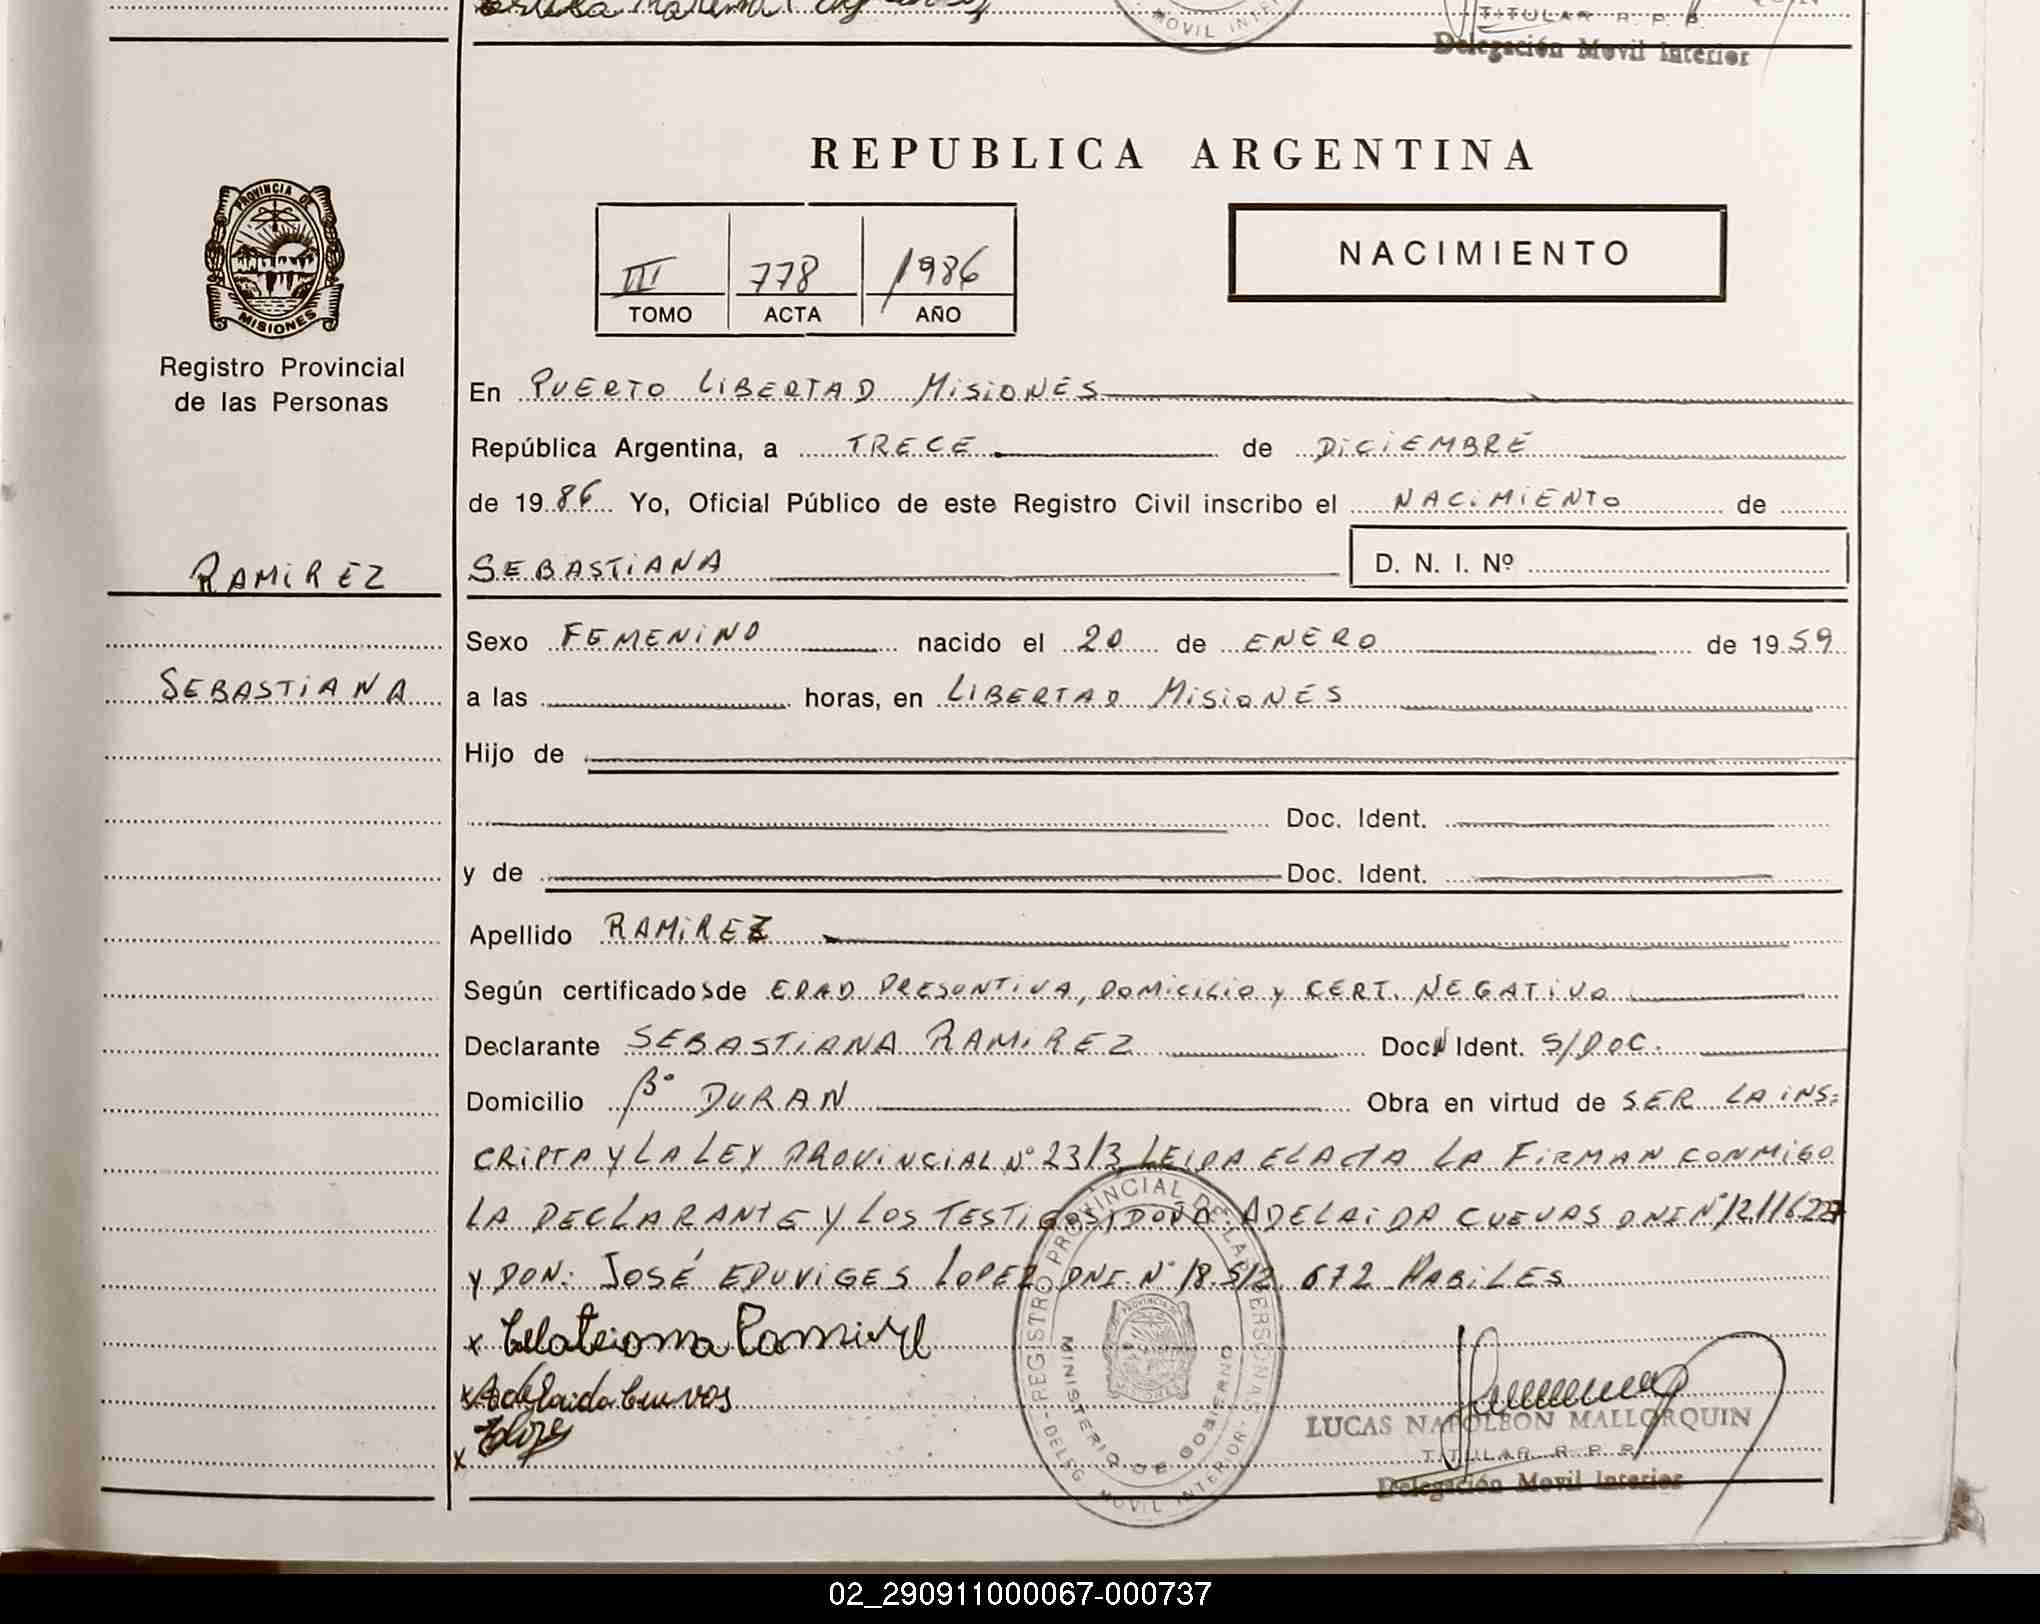 MOVIL INTER
TITULAR R. P. P.
Delegación Movil Interior
REPUBLICA ARGENTINA
PROVINCIA DE
MISIONES
Registro Provincial
de las Personas
III 778 1986
TOMO ACTA AÑO
NACIMIENTO
En PUERTO LIBERTAD MISIONES
República Argentina, a TRECE de DICIEMBRE
de 1986 Yo, Oficial Público de este Registro Civil inscribo el NACIMIENTO de
RAMIREZ
SEBASTIANA D. N. I. Nº
Sexo FEMENINO nacido el 20 de ENERO de 1959
SEBASTIANA
a las horas, en LIBERTAD MISIONES
Hijo de
Doc. Ident.
y de Doc. Ident.
Apellido RAMIREZ
Según certificados de EDAD PRESUNTIVA, DOMICILIO y CERT. NEGATIVO
Declarante SEBASTIANA RAMIREZ Doc. Ident. S/DOC.
Domicilio Bº DURAN Obra en virtud de SER LA INS=
CRIPTA Y LA LEY PROVINCIAL Nº 2313 LEIDA EL ACTA LA FIRMAN CONMIGO
LA DECLARANTE Y LOS TESTIGOS: DOÑA: ADELAIDA CUEVAS DNI Nº
Y DON: JOSÉ EDUVIGES LOPEZ DNI. Nº 18.512.672 HABILES
x Ramirez
x Adelaida Cuevas
x
REGISTRO PROVINCIAL DE LAS PERSONAS
MINISTERIO DE GOBIERNO
DELEG. MOVIL INTERIOR
LUCAS NAPOLEON MALLORQUIN
TITULAR R. P. P.
Delegación Movil Interior
02_290911000067-000737